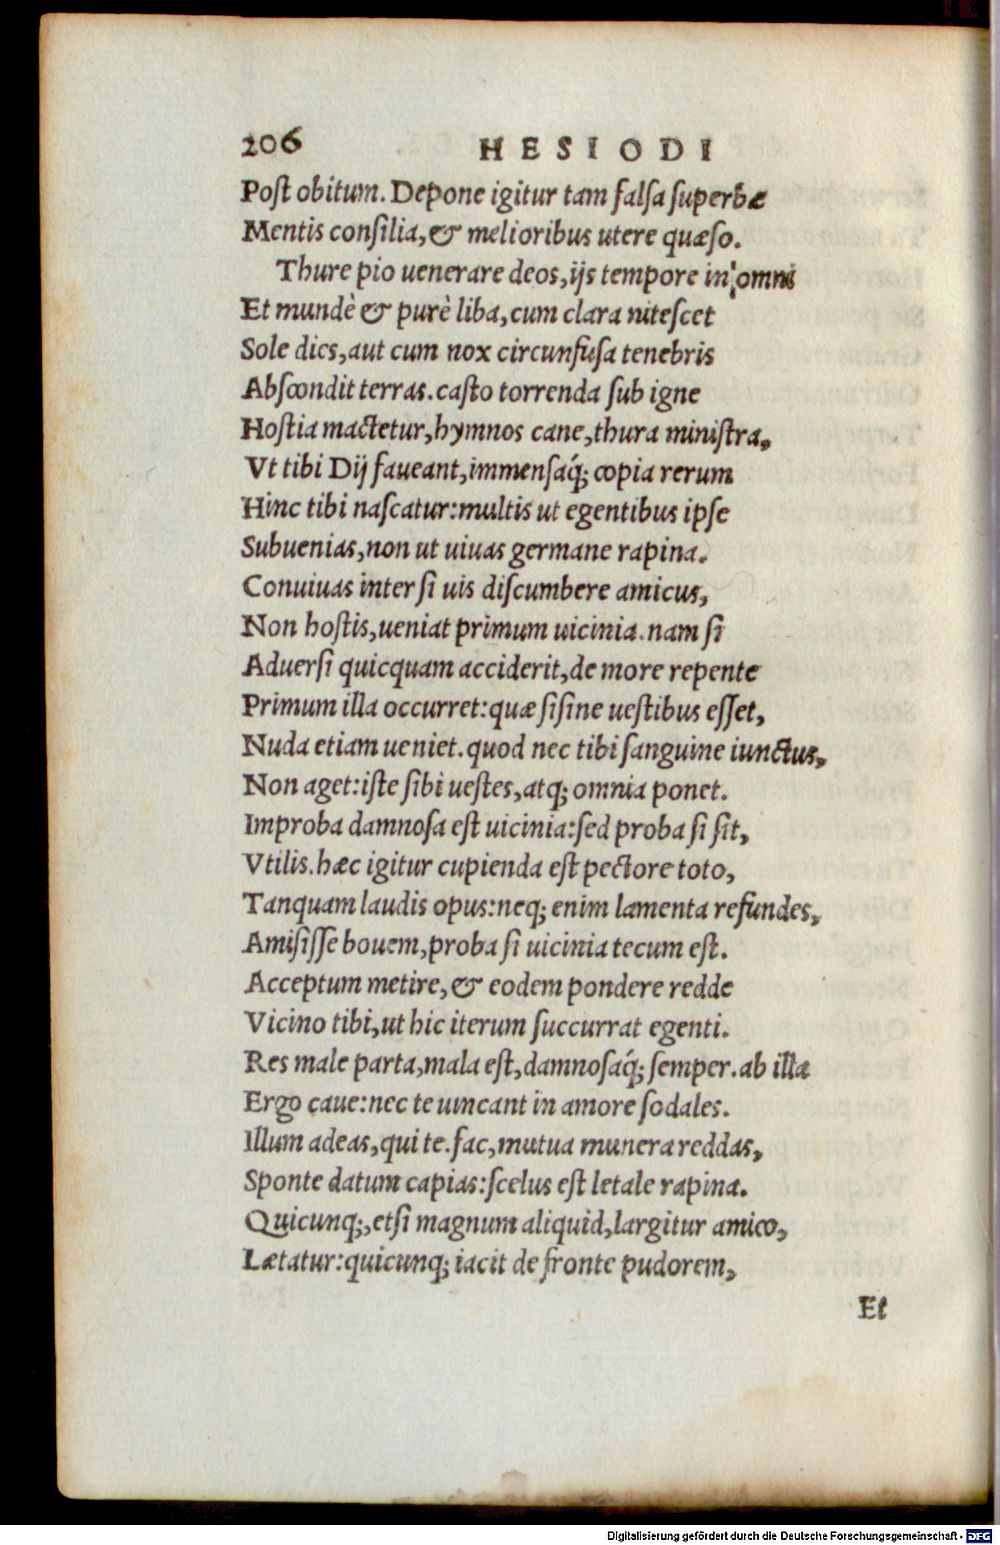 206 HESIODI
Post obitum. Depone igitur tam falsa superbæ
Mentis consilia, & melioribus utere quæso.
Thure pio uenerare deos, ijs tempore in omni
Et mundè & purè liba, cum clara nitescet
Sole dies, aut cum nox circunfusa tenebris
Abscondit terras. casto torrenda sub igne
Hostia mactetur, hymnos cane, thura ministra,
Vt tibi Dij faueant, immensaq́; copia rerum
Hinc tibi nascatur: multis ut egentibus ipse
Subuenias, non ut uiuas germane rapina.
Conuiuas inter si uis discumbere amicus,
Non hostis, ueniat primum uicinia. nam si
Aduersi quicquam acciderit, de more repente
Primum illa occurret: quæ si sine uestibus esset,
Nuda etiam ueniet. quod nec tibi sanguine iunctus,
Non aget: iste sibi uestes, atq; omnia ponet.
Improba damnosa est uicinia: sed proba si sit,
Vtilis. hæc igitur cupienda est pectore toto,
Tanquam laudis opus: neq; enim lamenta refundes,
Amisisse bouem, proba si uicinia tecum est.
Acceptum metire, & eodem pondere redde
Vicino tibi, ut hic iterum succurrat egenti.
Res male parta, mala est, damnosaq́; semper. ab illa
Ergo caue: nec te uincant in amore sodales.
Illum adeas, qui te. fac, mutua munera reddas,
Sponte datum capias: scelus est letale rapina.
Quicunq;, etsi magnum aliquid, largitur amico,
Lætatur: quicunq; iacit de fronte pudorem,
Et
Digitalisierung gefördert durch die Deutsche Forschungsgemeinschaft - DFG